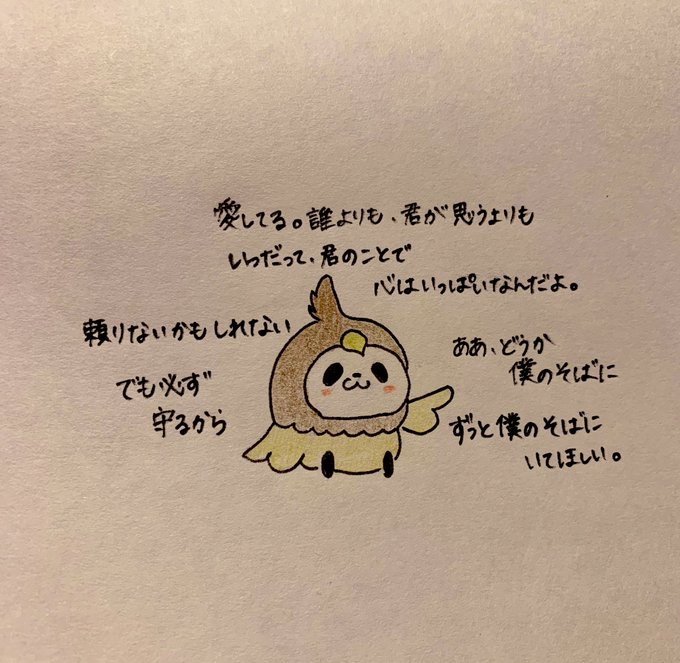 愛してる。誰よりも、君が思うよりも
いつだって、君のことで
心はいっぱいなんだよ。
頼りないかもしれない
でも必ず
守るから
ああ、どうか
僕のそばに
ずっと僕のそばに
いてほしい。